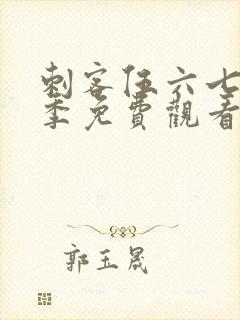 刺客伍六七
季免費觀看
郭玉晟